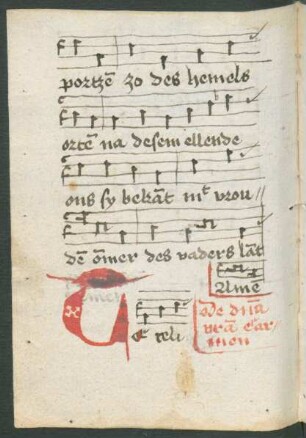 portzē zo des hemels
ortē na desem ellende
ons sy bekāt mt vrou//
dē ōmer des vaders lāt
Amē
Et reli
De dn̄a
nr̄a Car
men